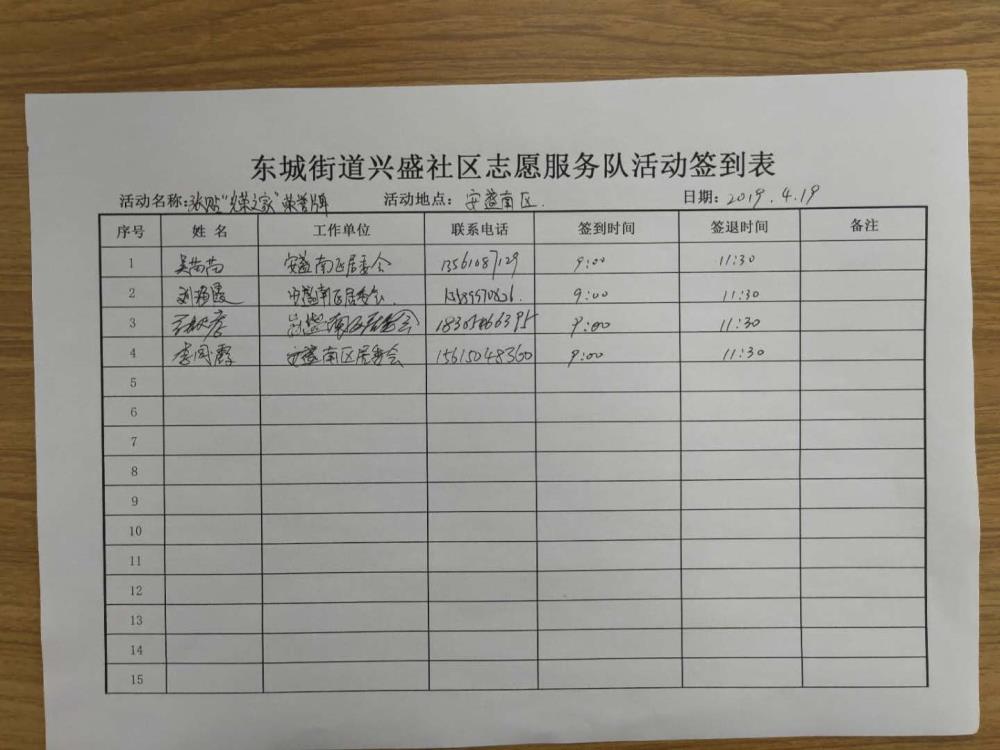 东城街道兴盛社区志愿服务队活动签到表
活动名称:张贴"光荣之家"荣誉牌 活动地点: 安盛南区. 日期: 2019.4.19
序号 姓名 工作单位 联系电话 签到时间 签退时间 备注
1 吴苗苗 安盛南区居委会 13561087129 9:00 11:30
2 安盛南区居委会. 9:00 11:30
3 安盛南区居委会 9:00 11:30
4 安盛南区居委会 15615048360 9:00 11:30
5
6
7
8
9
10
11
12
13
14
15